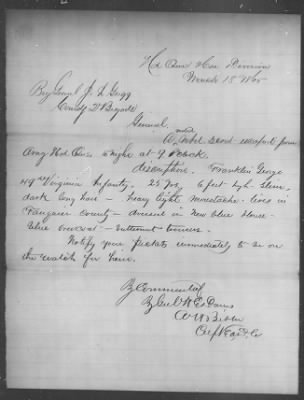 Hd Qurs Cav Division
March 15th/65
Brig Genl J I Gregg
Comdg 2d Brigade
General
noted
A Rebel Scout escaped from
Army Hd Qrs tonight at 9 oclock.
discription. Franklin George
49th Virginia Infanty. 25 Yrs, 6 feet high Slim,
dark long hair - heavy light moustache - lives in
Fauquier County - dressed in New blue blouse -
blue overcoat - butternut trousers.
Notify your pickets immediately to be on
the watch for him.
By Command of
Capt